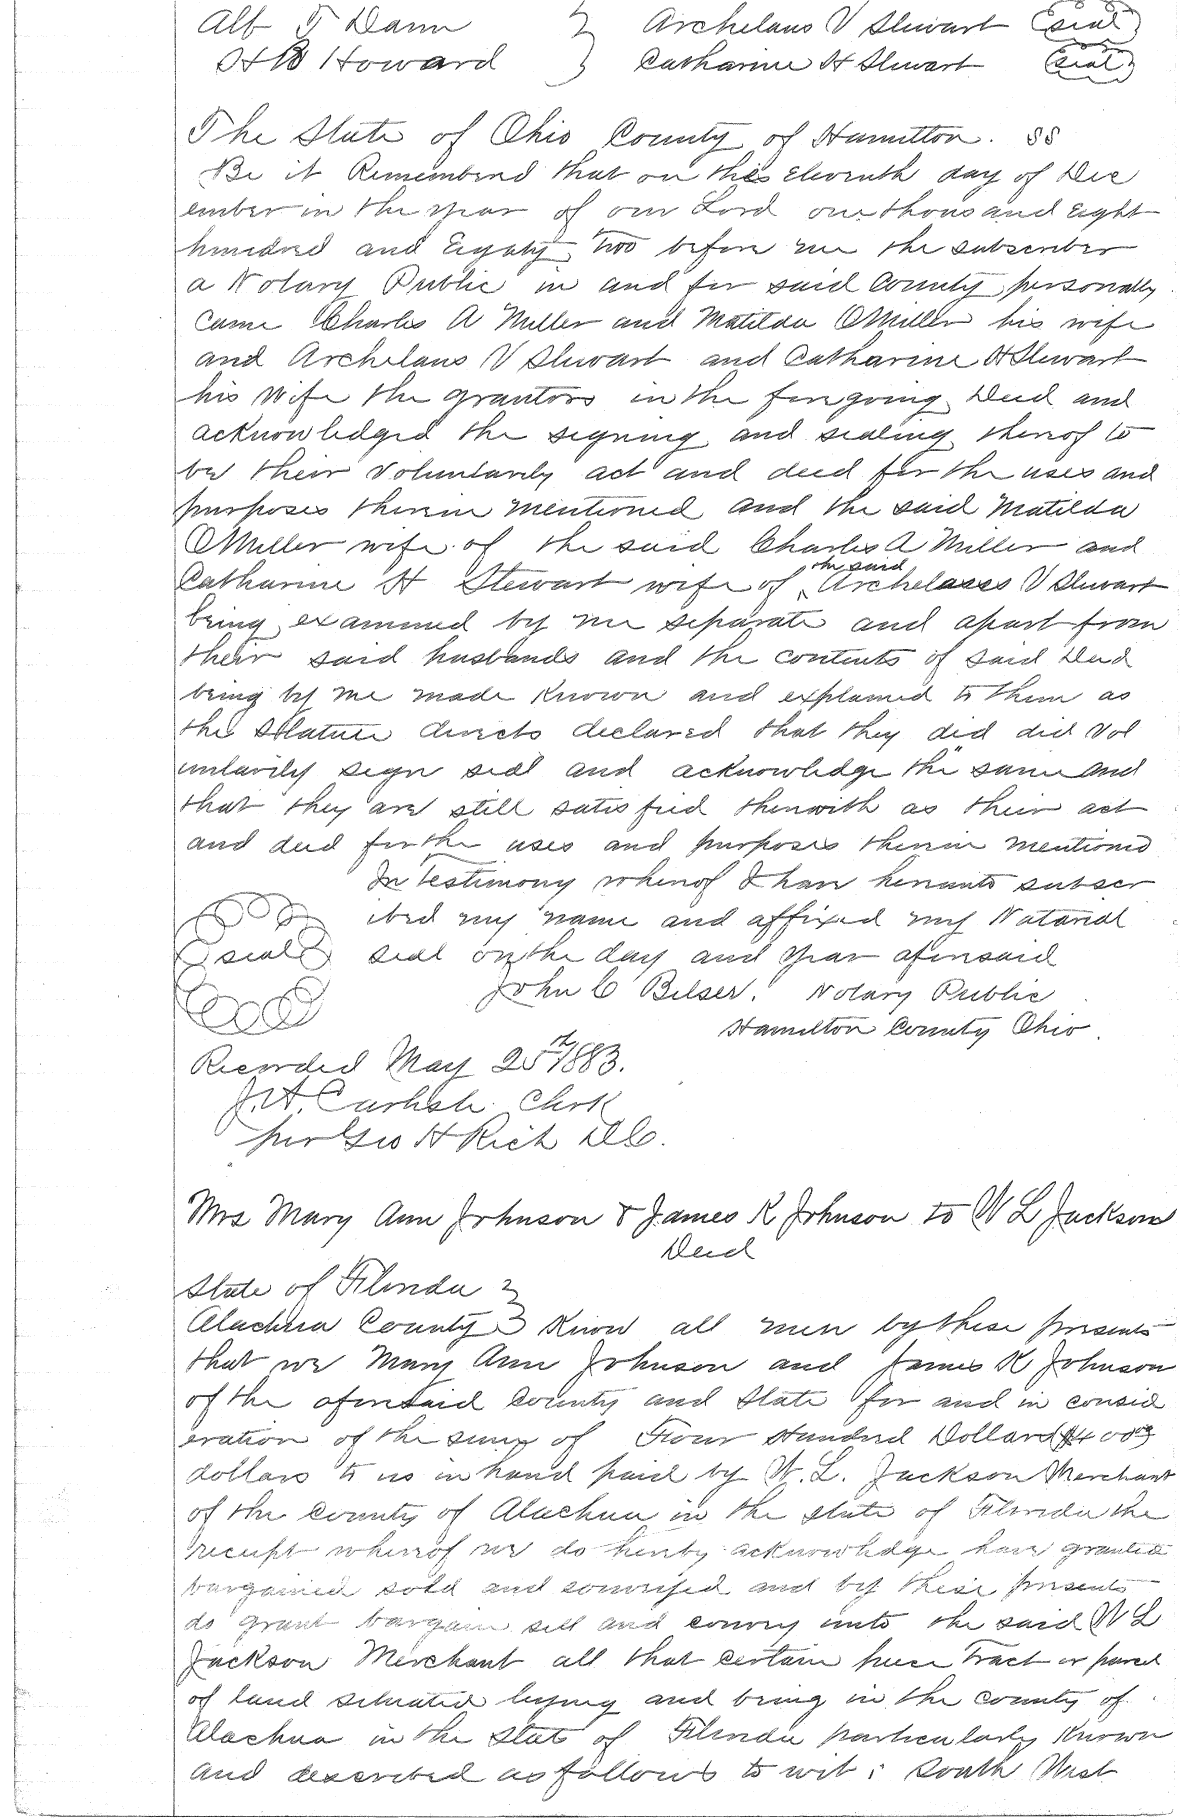 Alb T Dann } Archelaus V Stewart (seal)
H B Howard } Catharine H Stewart (seal)
The State of Ohio County of Hamilton. SS
Be it Remembered that on this Eleventh day of Dec
ember in the year of our Lord one thousand Eight
hundred and Eighty Two before me the subscriber
a Notary Public in and for said County personally
came Charles A Miller and Matilda O Miller his wife
and Archelaus V Stewart and Catharine H Stewart
his Wife the grantors in the foregoing Deed and
acknowledged the signing and sealing thereof to
be their voluntarily act and deed for the uses and
purposes therein mentioned and the said Matilda
O Miller wife of the said Charles A Miller and
Catharine H Stewart wife of the said Archelaus V Stewart
being examined by me separate and apart from
their said husbands and the contents of said Deed
being by me made Known and explained to them as
the Statute directs declared that they did did Vol
untarily sign seal and acknowledge the same and
that they are still satisfied therewith as their act
and deed for the uses and purposes therein mentioned
In Testimony whereof I have hereunto subscr
ibed my name and affixed my Notarial
seal seal on the day and year aforesaid
John C Belser. Notary Public
Hamilton County Ohio.
Recorded May 25th 1883.
J. A. Carlisle Clerk
per Geo H Rich D.C.
Mrs Mary Ann Johnson & James K Johnson to W L Jackson
Deed
State of Florida }
Alachua County } Know all men by these presents
that we Mary Ann Johnson and James K Johnson
of the aforesaid County and State for and in consid
eration of the sum of Four Hundred Dollars
dollars to us in hand paid by W. L. Jackson Merchant
of the County of Alachua in the State of Florida the
receipt whereof we do hereby acknowledge have granted
bargained sold and conveyed and by these presents
do grant bargain sell and convey unto the said W L
Jackson Merchant all that certain piece Tract or parcel
of land situated lying and being in the County of
Alachua in the State of Florida particularly Known
and described as follows to wit: South West